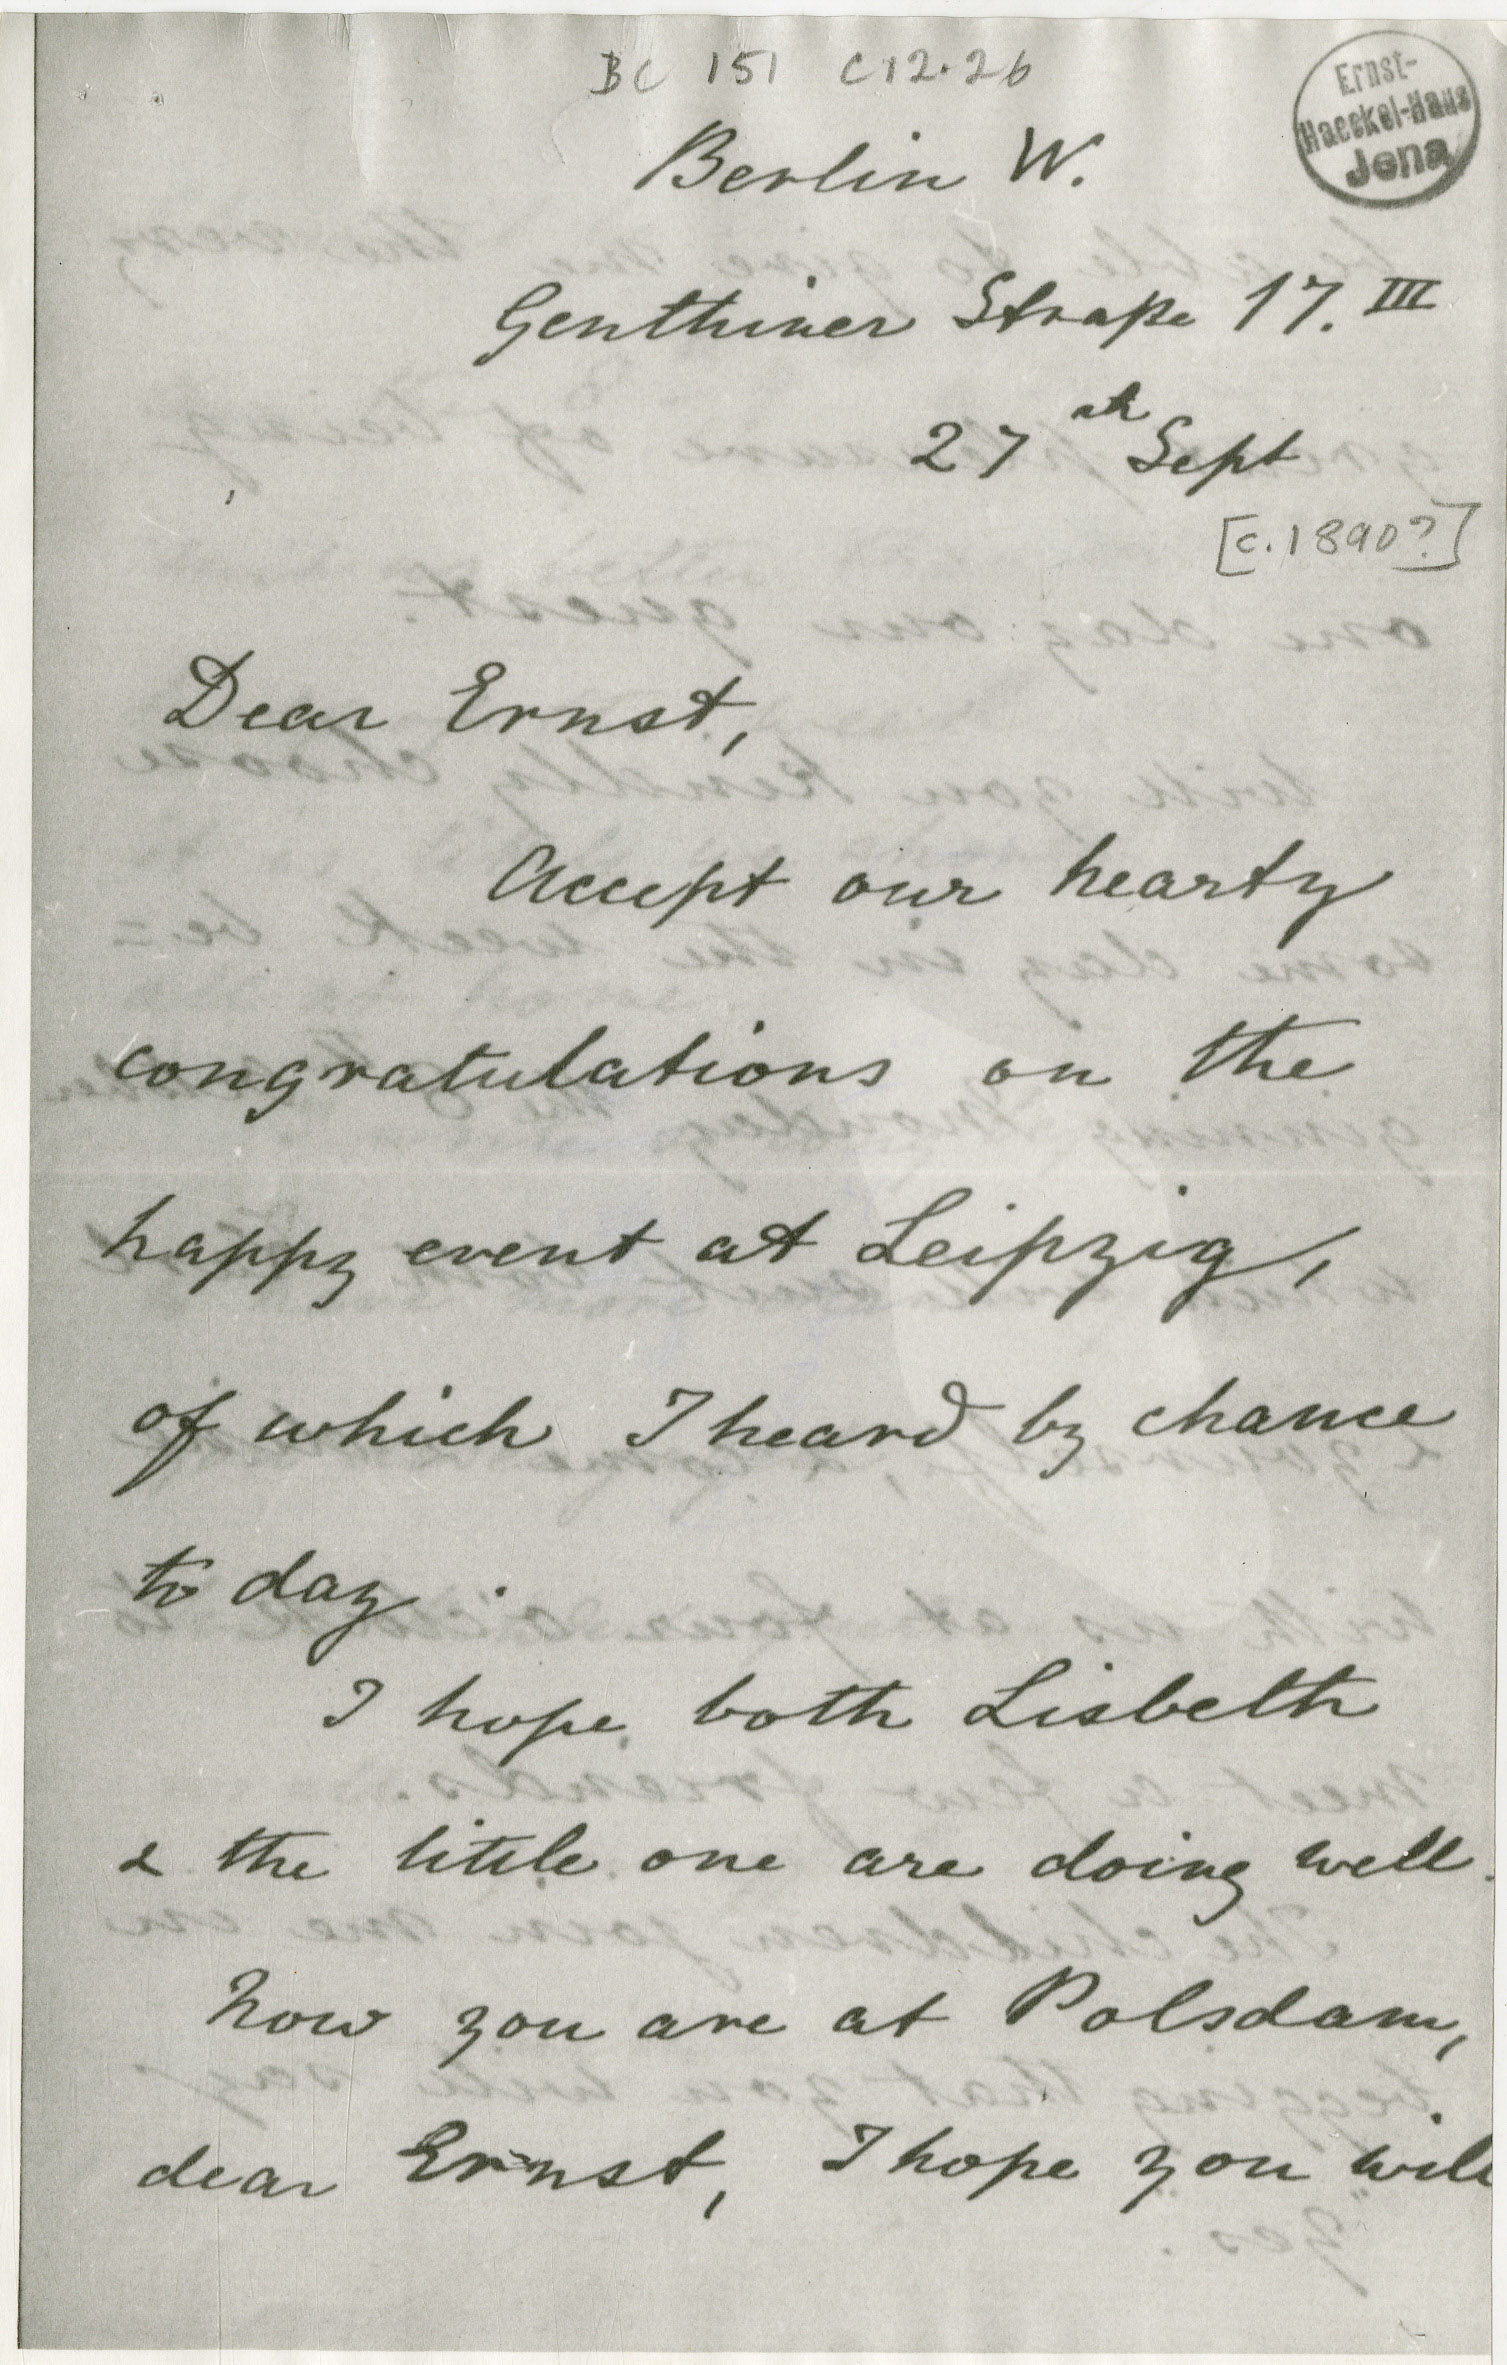 BC 151 C12.26
Ernst-
Haeckel-Haus
Jena
Berlin W.
Genthiner Straße 17. III
27th Sept
[c. 1890?]
Dear Ernst,
Accept our hearty
congratulations on the
happy event at Leipzig,
of which I heard by chance
to day.
I hope both Lisbeth
& the little one are doing well.
Now you are at Potsdam,
dear Ernst, I hope you will